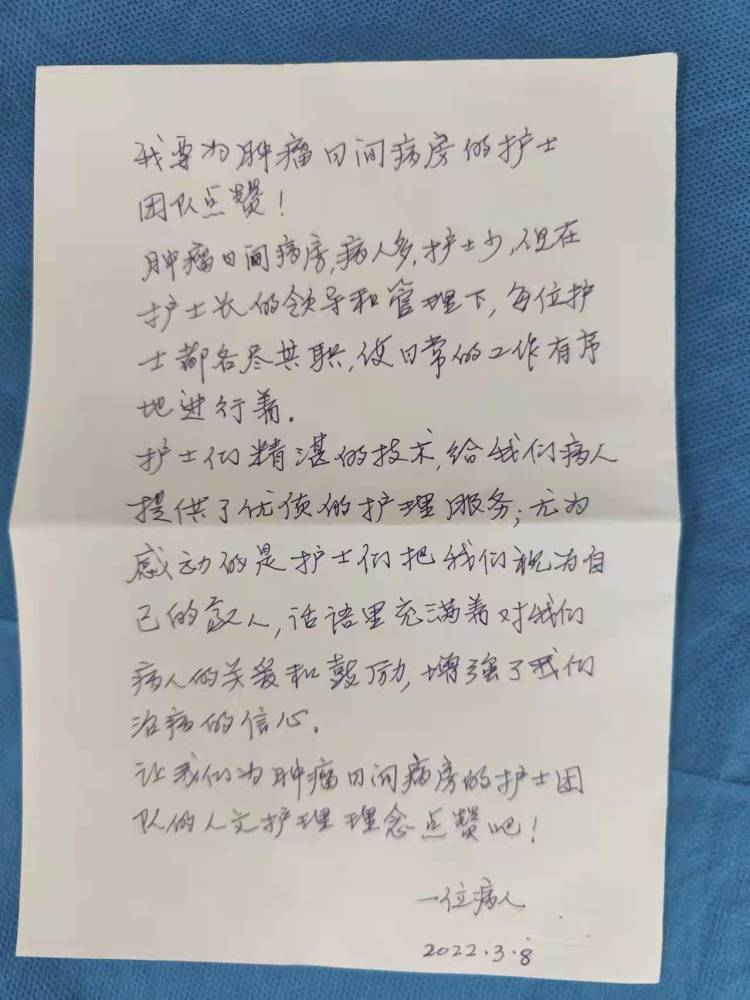 我要为肿瘤日间病房的护士
团队点赞!
肿瘤日间病房,病人多,护士少,但在
护士长的领导和管理下,每位护
士都各尽其职,使日常的工作有序
地进行着.
护士们精湛的技术,给我们病人
提供了优质的护理服务;尤为
感动的是护士们把我们视为自
己的家人,话语里充满着对我们
病人的关爱和鼓励,增强了我们
治病的信心.
让我们为肿瘤日间病房的护士团
队的人文护理理念点赞吧!
一位病人
2022.3.8